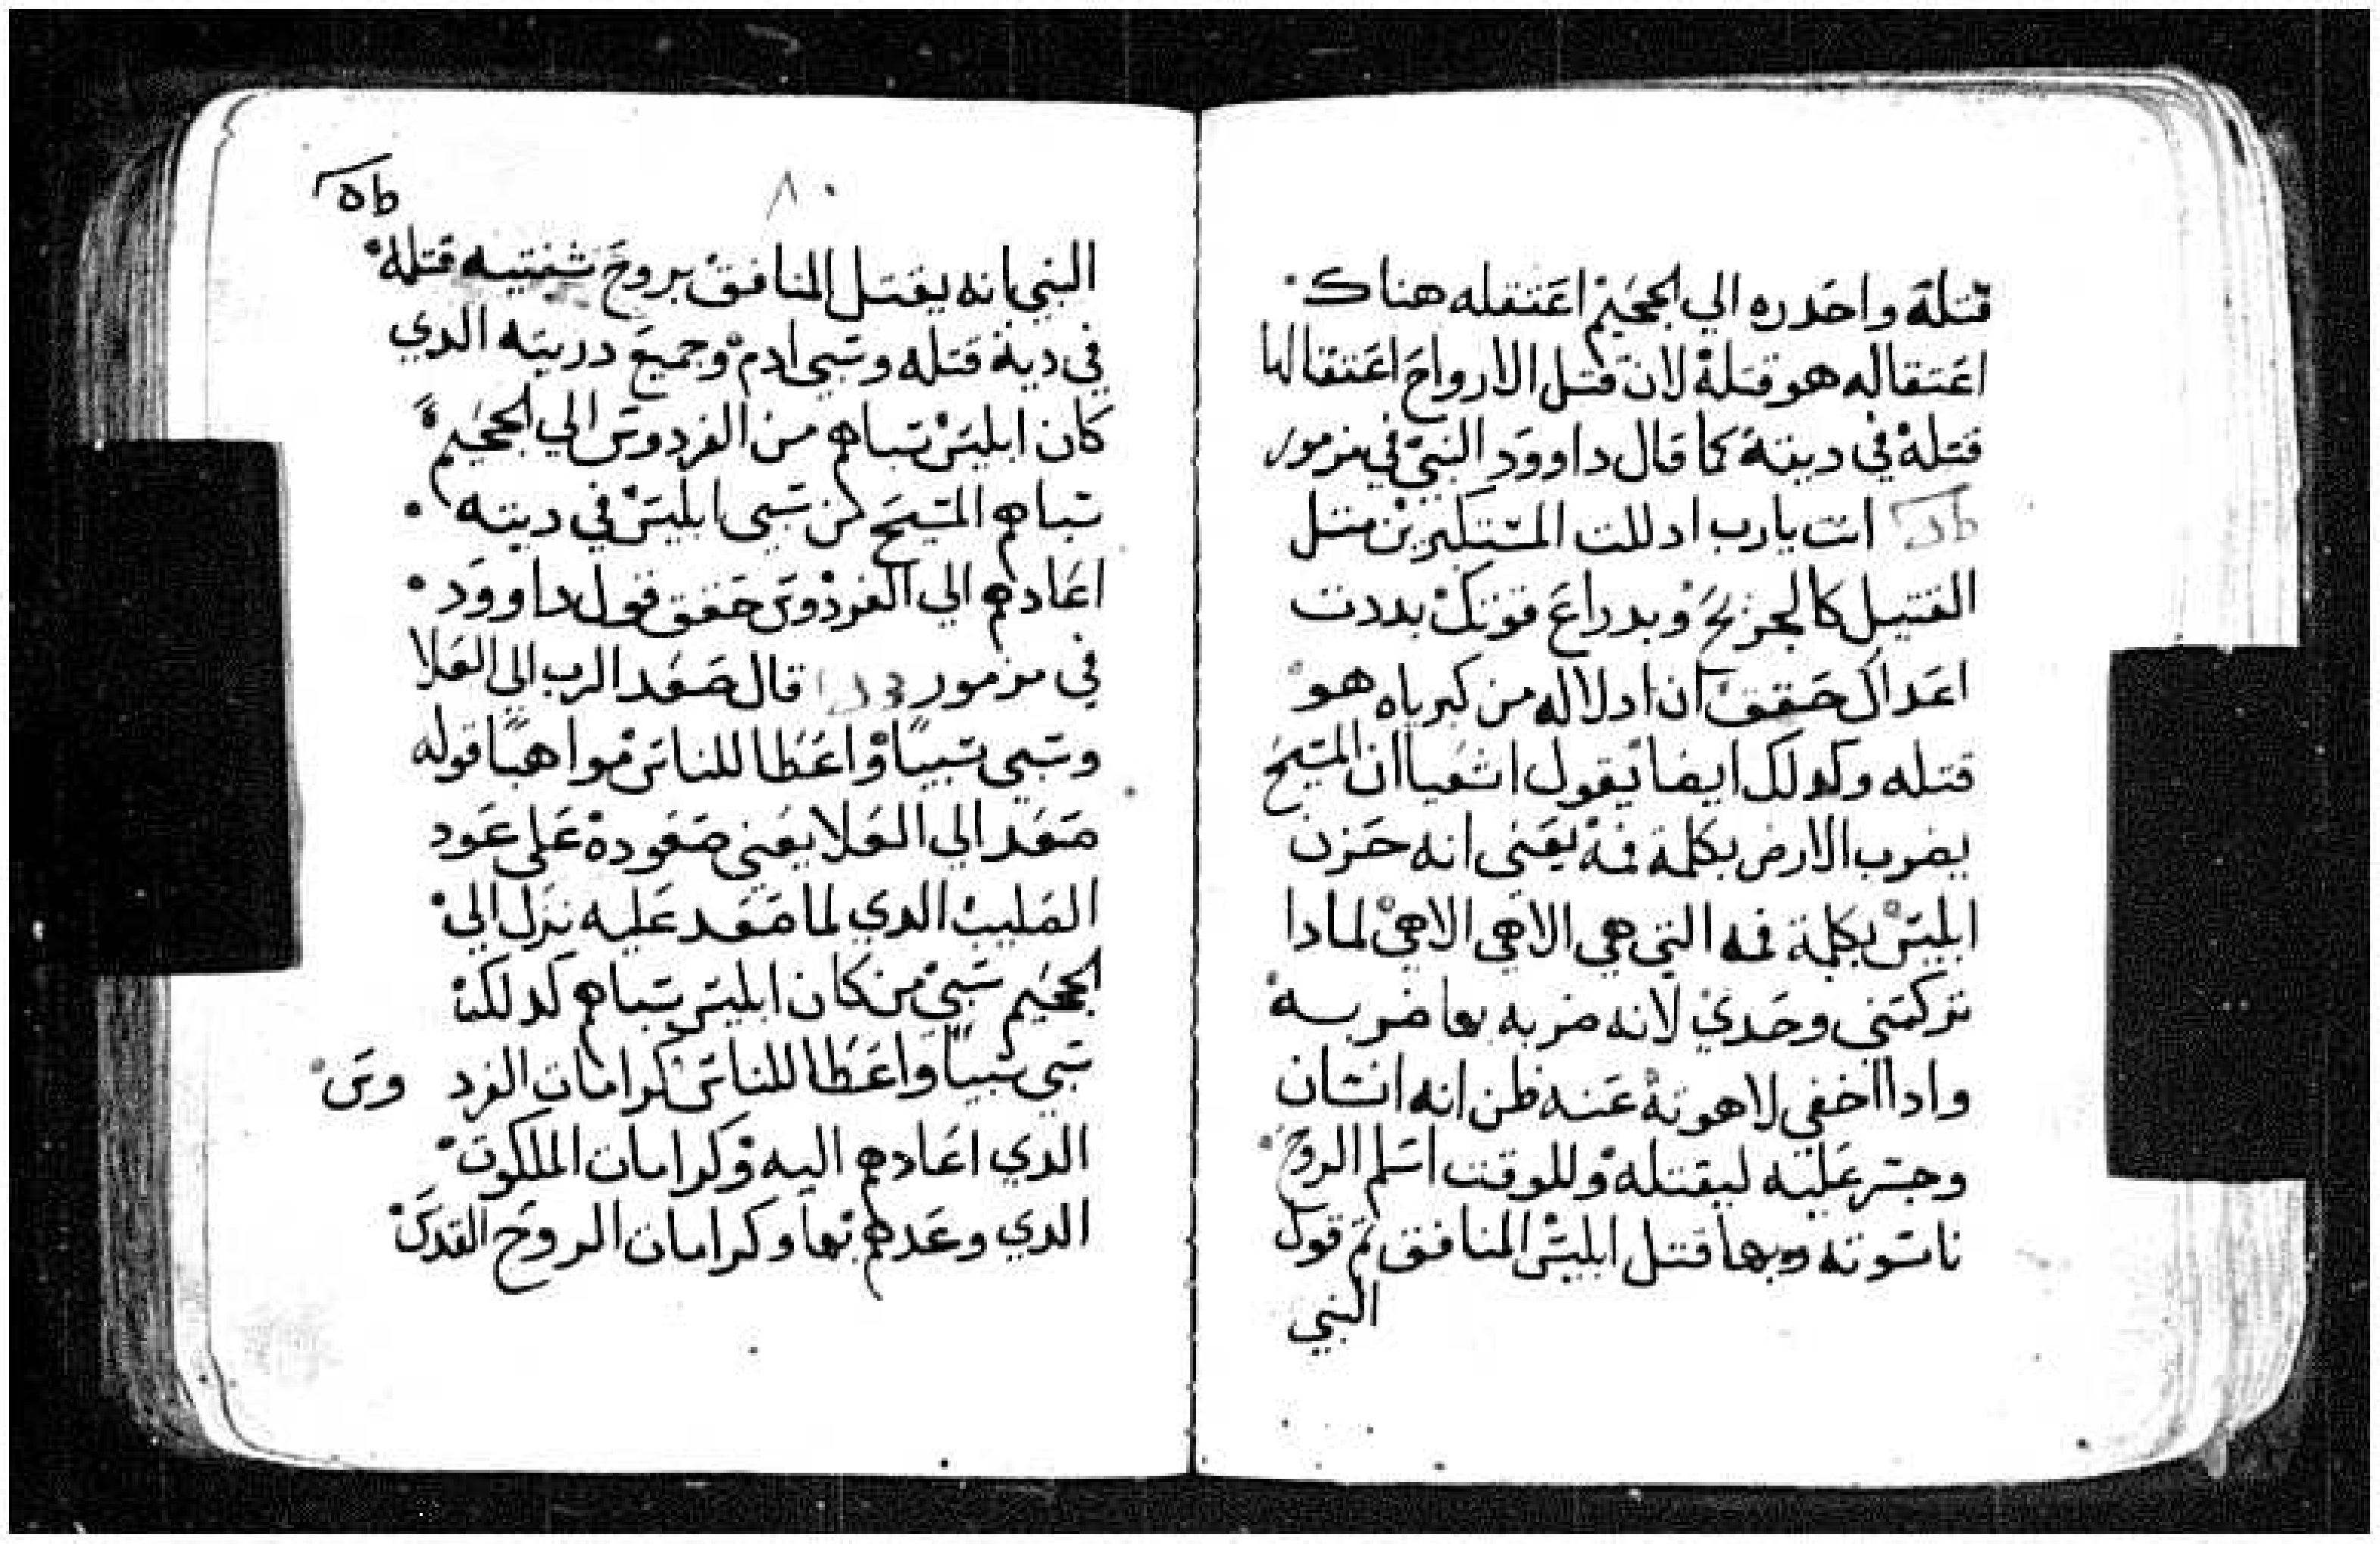 قتلة واحدره الي الجحيم اعتقله هناك
اعتقاله هو قتلة لان قتل الارواح اعتقالها
قتلة في ديتة كما قال داوود النبي في مزمور
انت يارب ادللت المستكبرين متل
القتيل كالجريح وبدراع قوتك بددت
اعداك حقق ان ادلاله من كبرياه هو
قتله وكدلك ايضا يقول اشعيا ان المسيح
يضرب الارض بكلمة فمه يعني انه حزن
ابليس بكلمة فمه التي هي الاهي الاهي لمادا
تركتني وحدي لانه ضربه بها ضربه
وادا اخفي لاهوته عنه ظن انه انسان
وجسر عليه ليقتله وللوقت اسلم الروح
ناسوته وبها قتل ابليس المنافق تم قول
النبي
٨٠
النبي انه يقتل المنافق بروح شفتيه قتله
في دية قتله وسبي ادم وجميع دريته الدي
كان ابليس سباهم من الفردوس الي الجحيم
سباهم المسيح من سبي ابليس في ديته
اعادهم الي الفردوس حقق قول داوود
في مزمور قال صعد الرب الي العلا
وسبي سبيا واعطا للناس مواهبا قوله
صعد الي العلا يعني صعوده علي عود
الصليب الدي لما صعد عليه نزل الي
الجحيم سبي من كان ابليس سباهم كدلك
سبي سبيا واعطا للناس كرامات الفرد وس
الدي اعادهم اليه وكرامات الملكوت
الدي وعدهم بها وكرامات الروح القدس